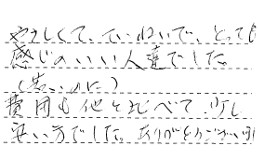 やさしくて、ていねいで、とっても
感じのいい人達でした。
(若いのに)
費用も他と比べて、少し
安い方でした。ありがとうござい